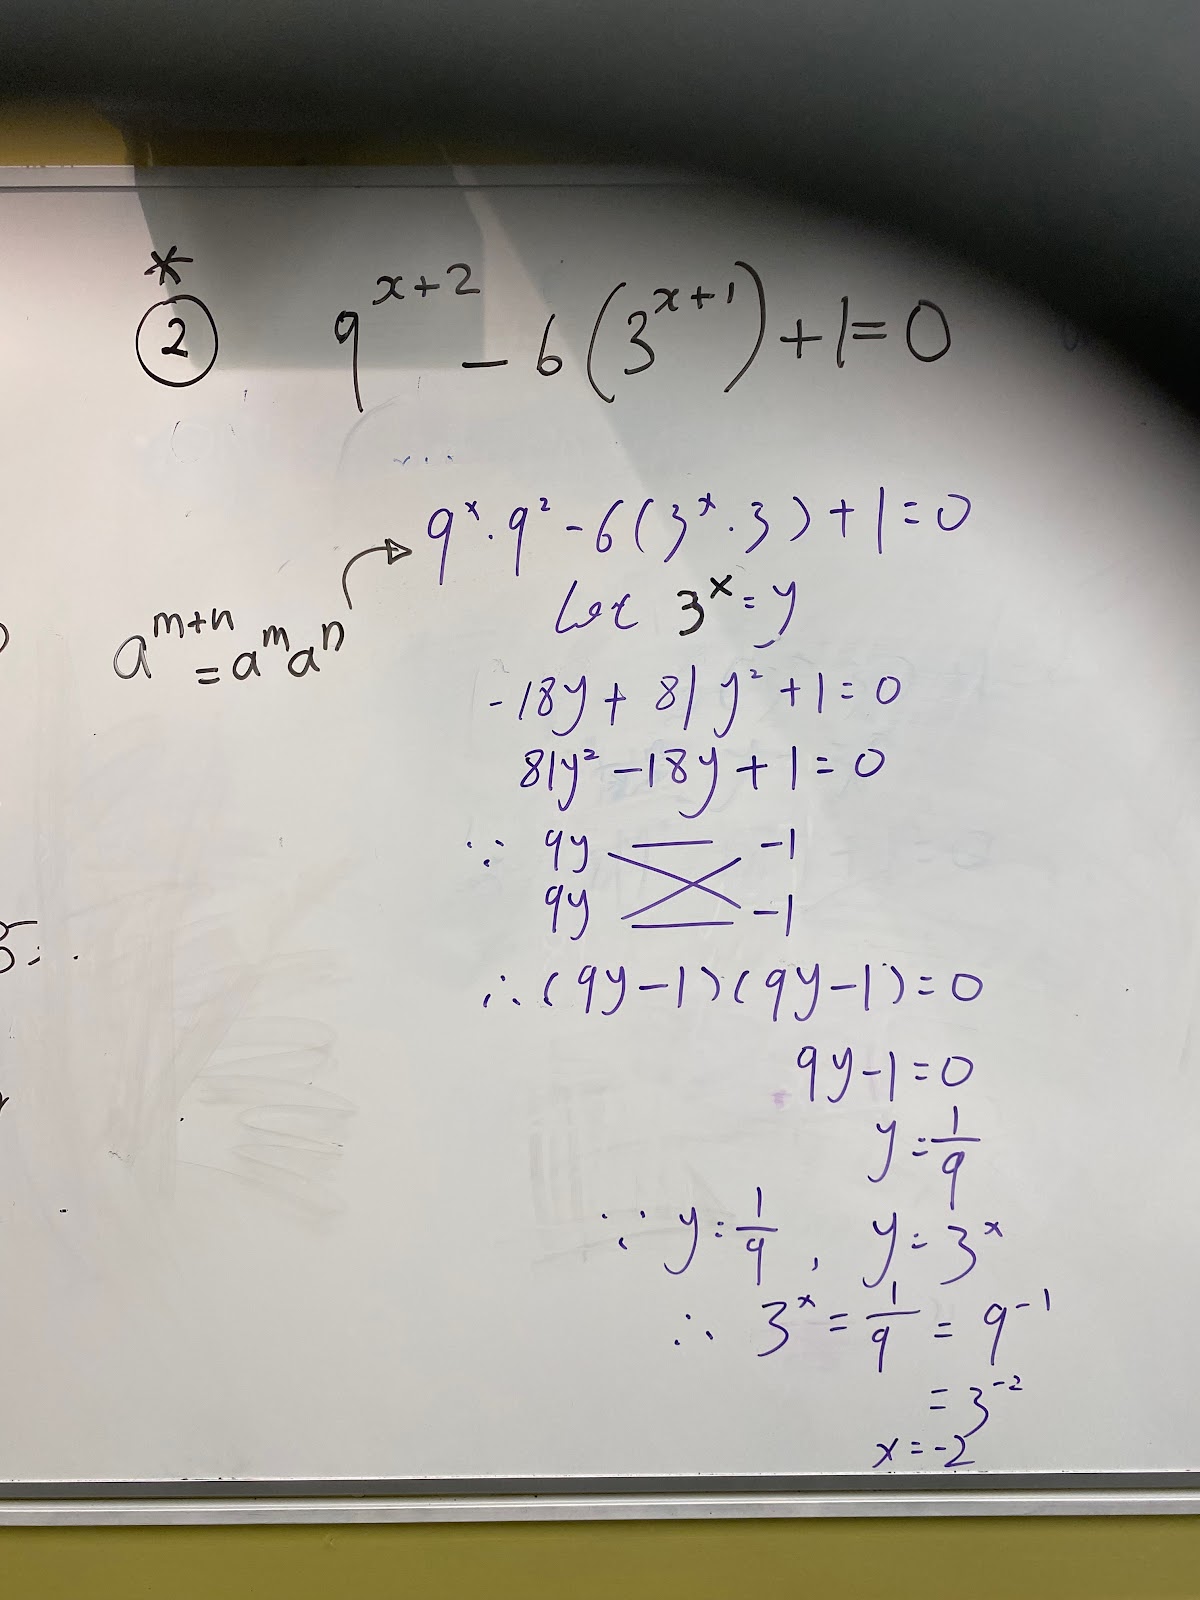 *
② 9^{x+2} - 6(3^{x+1}) + 1 = 0
9^x · 9^2 - 6(3^x · 3) + 1 = 0
a^{m+n} = a^m a^n
Let 3^x = y
-18y + 81y^2 + 1 = 0
81y^2 - 18y + 1 = 0
∵ 9y -1
9y -1
∴ (9y-1)(9y-1) = 0
9y-1 = 0
y = 1/9
∵ y = 1/9, y = 3^x
∴ 3^x = 1/9 = 9^{-1}
= 3^{-2}
x = -2